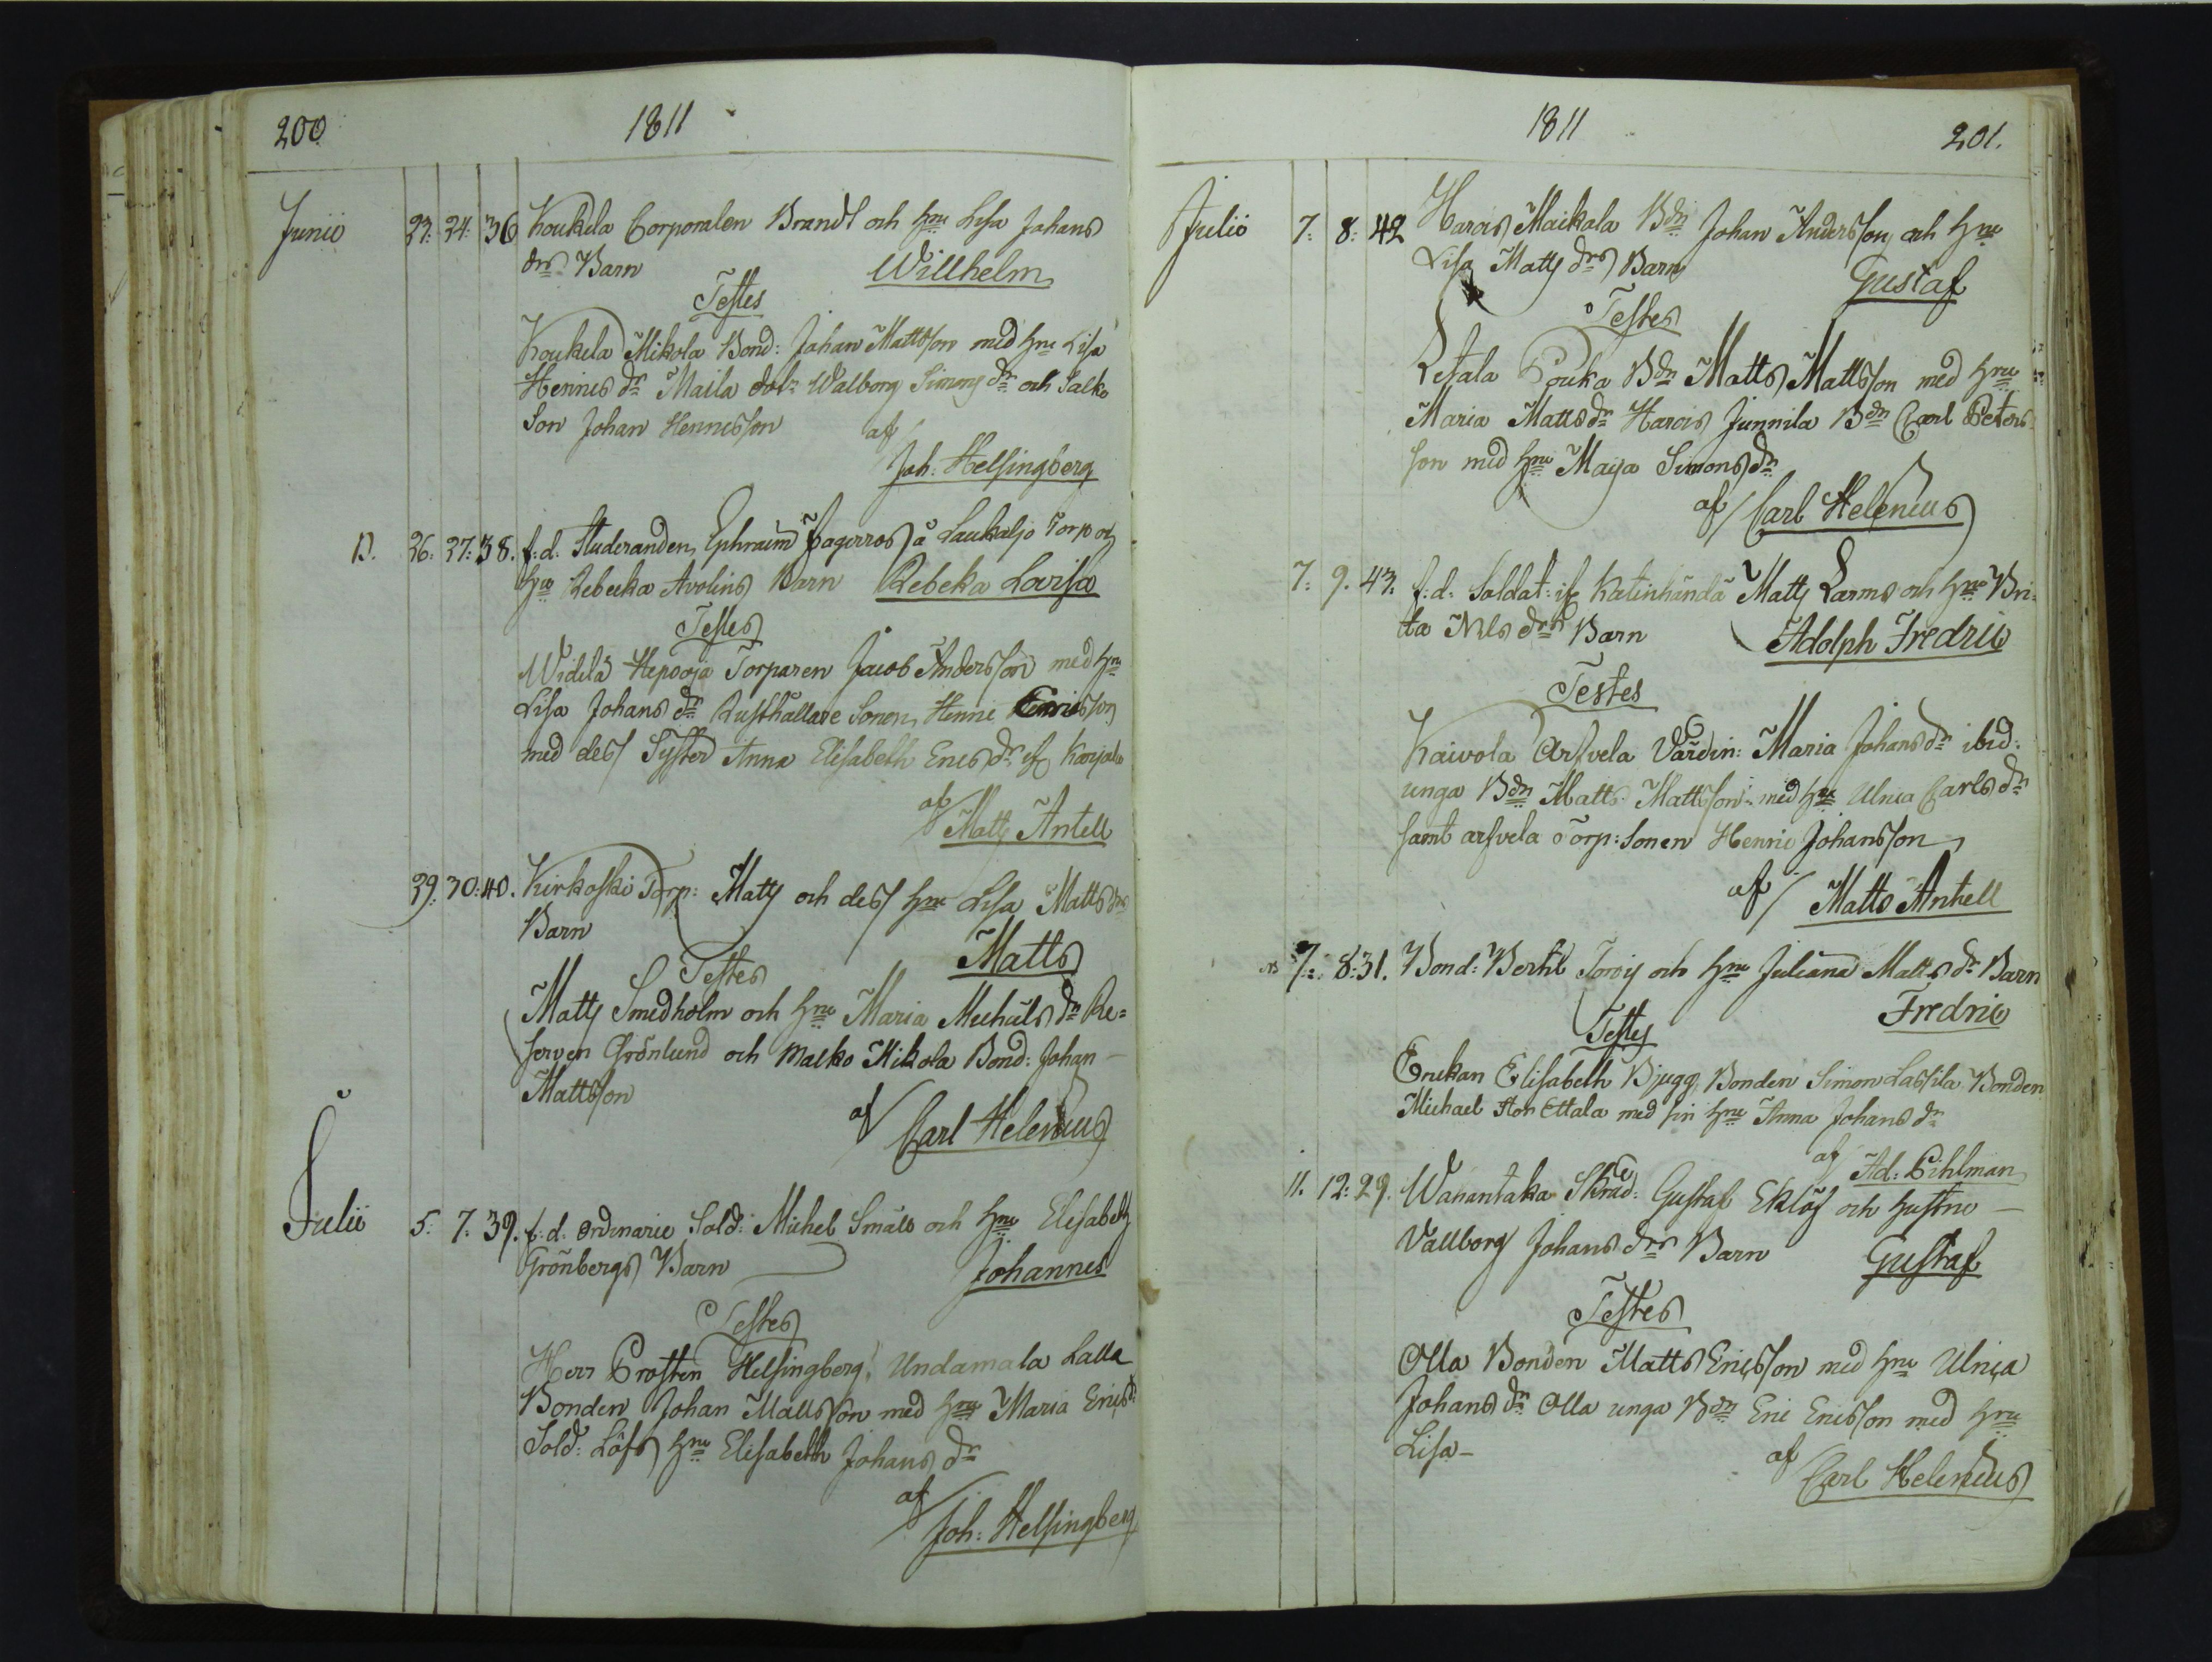 200
1811
Junii 23. 24. 36 Koukela Corporalen Brandt och Hru Lisa Johans
drs Barn Willhelm
Testes
Koukela Mikola Bond: Johan Mattsson med Hru Lisa
Hennes dr Maila Walborg Simons dr och Salko
Son Johan Hennesson af
Joh: Helsingberg
D. 26. 27. 38. f:d: Studeranden Ephraim Fagerroos å Laukaljo Torp och
Hru Rebecka Avolins Barn Rebeka Lovisa
Testes
Widilä Hepooja Torparen Jacob Andersson med Hru
Lisa Johans dr Rusthållare Sonen Henric
med dess Syster Anna Elisabeth Erics dr if Karjala
af
Matts Antell
29. 30. 40. Kirkoski Torp: Matts och dess Hru Lisa Matts drs
Barn Matts
Testes
Matts Smedholm och Hru Maria Michels dr Re=
serven Grönlund och Maiko Mikola Bond: Johan
Mattsson
af Carl Helenius
Julii 5. 7. 39. f:d: Ordinarie Sold: Michel Smäll och Hru Elisabeth
Grönbergs Barn Johannes
Testes
Herr Prosten Helsingberg, Undamala Lalla
Bonden Johan Mattsson med Hru Maria Erics dr
Sold: Löfs Hru Elisabeth Johans dr
af
Joh: Helsingberg
1811
201.
Julii 7. 8. 42 Harois Maikala Bdn Johan Andersson och Hru
Lisa Matts drs Barn Gustaf
Testes
Letala Pouka Bdn Matts Mattsson med Hru
Maria Matts dr Harois Junnila Bdn Carl Peters
son med Hru Maja Simons dr
af Carl Helenius
7. 9. 43. f:d: Soldat: if Katinhändä Matts Larms och Hru Bri-
ta Nils drs Barn Adolph Fredric
Testes
Kaivola Arfvela Värdin: Maria Johans dr ibid:
unga Bdn Matts Mattsson med Hru Ulrica Carls dr
samt arfvela Torp: Sonen Henric Johansson
af Matts Antell
7. 8. 31. Bond: Bertil Torvi och Hru Juliana Matts dr Barn
Fredric
Testes
Enckan Elisabeth Bjugg, Bonden Simon Lassila Bonden
Michael Stor Ettala med sin Hru Anna Johans dr
af Ad: Pihlman
11. 12. 29. Wanantaka Skräd: Gustaf Eklöf och hustru
Vallborg Johans drs Barn Gustaf
Testes
Olla Bonden Matts Ericsson med Hru Ulrica
Johans dr Olla unga Bdn Eric Ericsson med Hru
Lisa
af
Carl Helenius